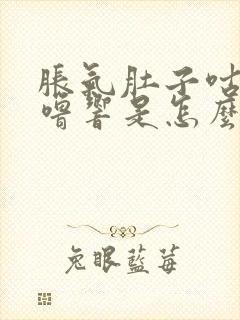 脹氣肚子咕
嚕響是怎麼
兔眼藍莓